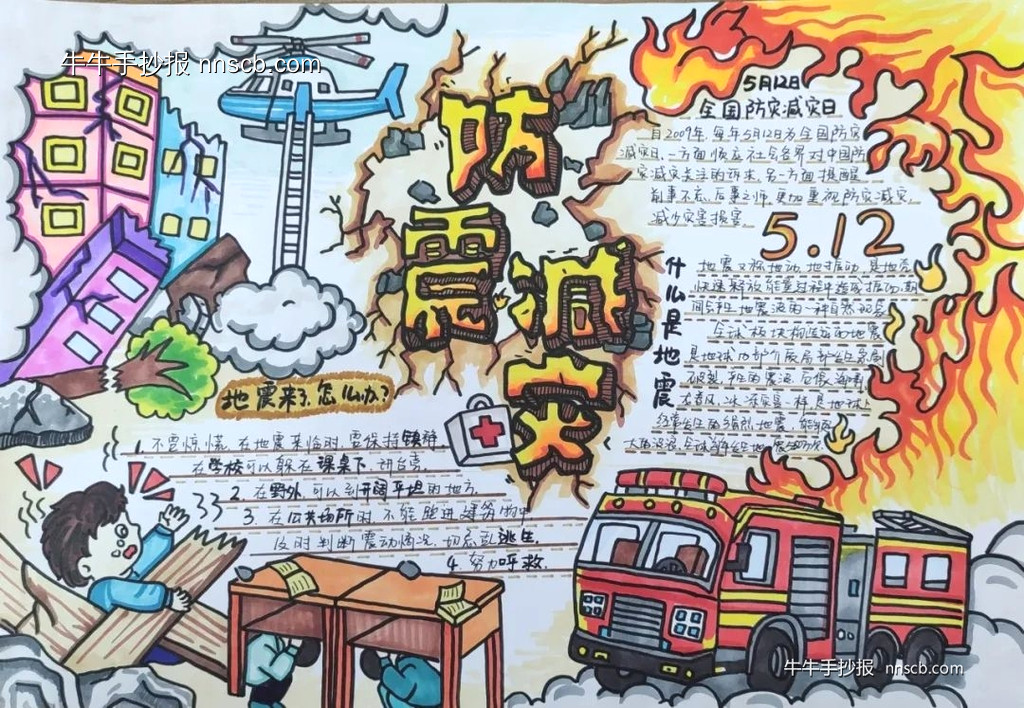 牛牛手抄报 nnscb.com
防震减灾
5月12日
全国防灾减灾日
自2009年,每年5月12日为全国防灾
减灾日,一方面顺应社会各界对中国防
灾减灾关注的诉求,另一方面提醒
前事不忘,后事之师,更加重视防灾减灾,
减少灾害损害。
5.12
什么是地震
地震又称地动、地振动,是地壳
快速释放能量过程中造成振动,期
间会产生地震波的一种自然现象
全球板块构造运动地震
是地球内部介质局部发生急剧
破裂,产生的震波,
大海啸、冰冻灾害一样,是地球上
经常发生的
地震来了,怎么办?
1.不要惊慌,在地震来临时,要保持镇静。
在学校可以躲在课桌下,讲台旁。
2.在野外,可以到开阔平坦的地方。
3.在公共场所时,不能跑进建筑物中
及时判断震动情况,切忌乱逃生。
4.努力呼救.
牛牛手抄报 nnscb.com